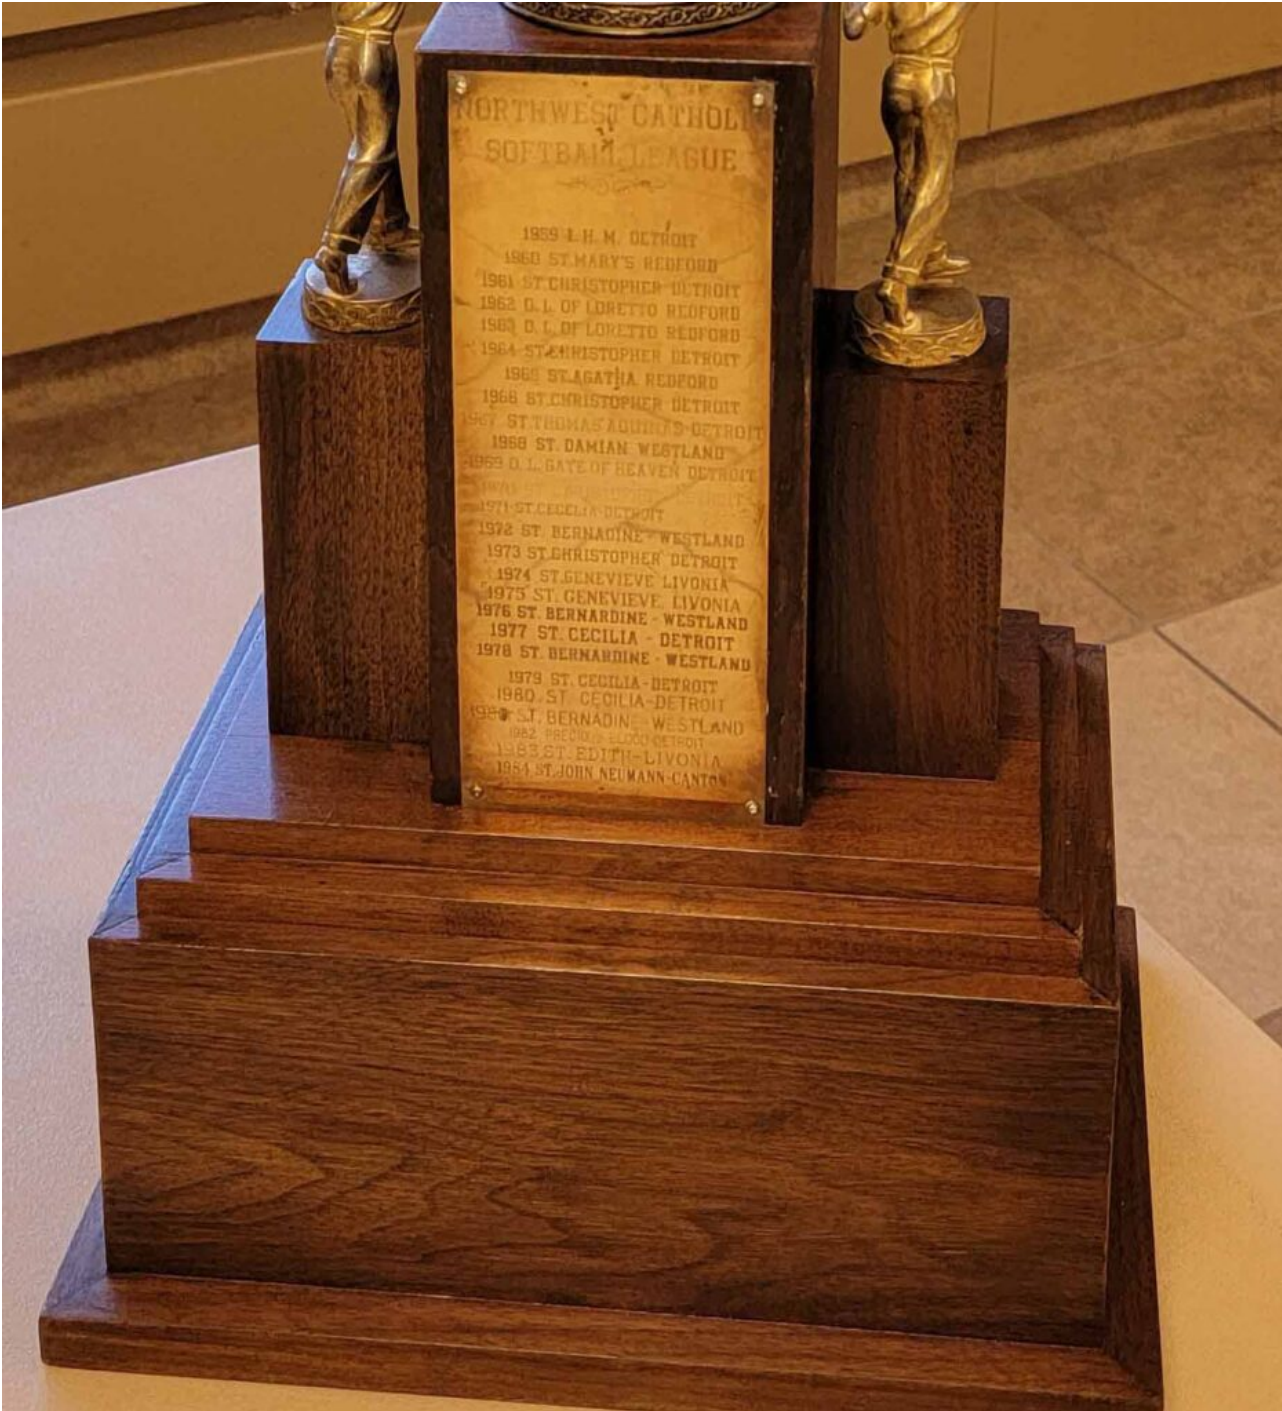 NORTHWEST CATHOLIC
SOFTBALL LEAGUE
1959 I. H. M. DETROIT
1960 ST. MARY'S REDFORD
1961 ST. CHRISTOPHER DETROIT
1962 O. L. OF LORETTO REDFORD
1963 O. L. OF LORETTO REDFORD
1964 ST. CHRISTOPHER DETROIT
1965 ST. AGATHA REDFORD
1966 ST. CHRISTOPHER DETROIT
1967 ST. THOMAS AQUINAS-DETROIT
1968 ST. DAMIAN WESTLAND
1969 O. L. GATE OF HEAVEN DETROIT
1971 ST. CECELIA-DETROIT
1972 ST. BERNADINE - WESTLAND
1973 ST. CHRISTOPHER DETROIT
1974 ST. GENEVIEVE LIVONIA
1975 ST. GENEVIEVE LIVONIA
1976 ST. BERNARDINE - WESTLAND
1977 ST. CECILIA - DETROIT
1978 ST. BERNARDINE - WESTLAND
1979 ST. CECILIA-DETROIT
1980 ST CECILIA-DETROIT
ST. BERNADINE-WESTLAND
1982 PRECIOUS BLOOD-DETROIT
1983 ST. EDITH-LIVONIA
1984 ST. JOHN NEUMANN-CANTON